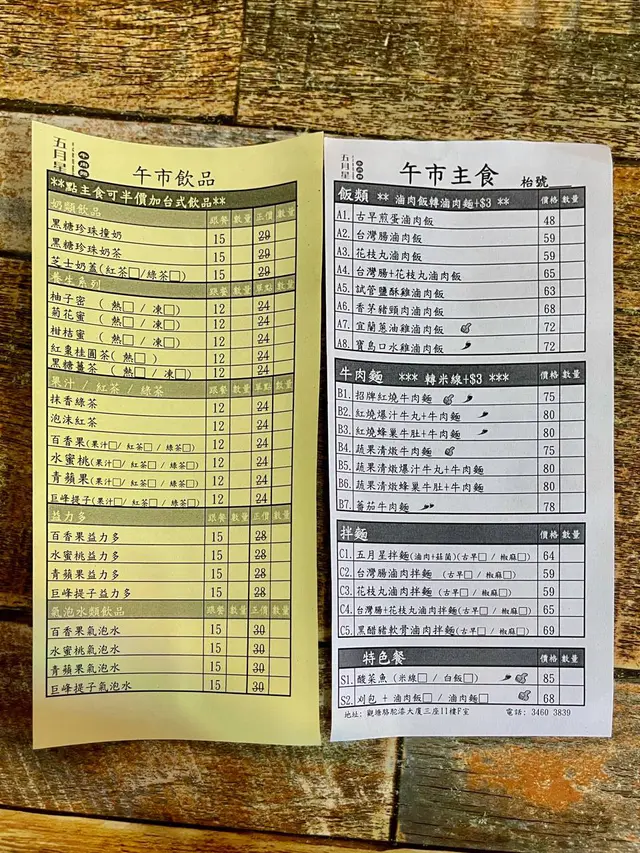 五月星
午市飲品
**點主食可半價加台式飲品**
奶類飲品 跟餐 數量 正價 數量
黑糖珍珠撞奶 15 29
黑糖珍珠奶茶 15 29
芝士奶蓋(紅茶□/綠茶□) 15 29
養生系列 跟餐 數量 單點 數量
柚子蜜 ( 熱□ / 凍□) 12 24
菊花蜜 ( 熱□ / 凍□) 12 24
柑桔蜜 ( 熱□ / 凍□) 12 24
紅棗桂圓茶( 熱□ ) 12 24
黑糖薑茶 ( 熱□ / 凍□) 12 24
果汁 / 紅茶 / 綠茶 跟餐 數量 單點 數量
抹香綠茶 12 24
泡沫紅茶 12 24
百香果(果汁□/ 紅茶□ / 綠茶□) 12 24
水蜜桃(果汁□/ 紅茶□ / 綠茶□) 12 24
青蘋果(果汁□/ 紅茶□ / 綠茶□) 12 24
巨峰提子(果汁□/ 紅茶□ / 綠茶□) 12 24
益力多 跟餐 數量 正價 數量
百香果益力多 15 28
水蜜桃益力多 15 28
青蘋果益力多 15 28
巨峰提子益力多 15 28
氣泡水類飲品 跟餐 數量 正價 數量
百香果氣泡水 15 30
水蜜桃氣泡水 15 30
青蘋果氣泡水 15 30
巨峰提子氣泡水 15 30
五月星
午市主食 枱號
飯類 ** 滷肉飯轉滷肉麵+$3 ** 價格 數量
A1. 古早煎蛋滷肉飯 48
A2. 台灣腸滷肉飯 59
A3. 花枝丸滷肉飯 59
A4. 台灣腸+花枝丸滷肉飯 65
A5. 試管鹽酥雞滷肉飯 63
A6. 香茅豬頸肉滷肉飯 68
A7. 宜蘭蔥油雞滷肉飯 72
A8. 寶島口水雞滷肉飯 72
牛肉麵 *** 轉米線+$3 *** 價格 數量
B1. 招牌紅燒牛肉麵 75
B2. 紅燒爆汁牛丸+牛肉麵 80
B3. 紅燒蜂巢牛肚+牛肉麵 80
B4. 蔬果清燉牛肉麵 75
B5. 蔬果清燉爆汁牛丸+牛肉麵 80
B6. 蔬果清燉蜂巢牛肚+牛肉麵 80
B7. 蕃茄牛肉麵 78
拌麵 價格 數量
C1. 五月星拌麵(滷肉+菇菌)(古早□ / 椒麻□) 64
C2. 台灣腸滷肉拌麵 (古早□ / 椒麻□) 59
C3. 花枝丸滷肉拌麵 (古早□ / 椒麻□) 59
C4. 台灣腸+花枝丸滷肉拌麵(古早□ / 椒麻□) 65
C5. 黑醋豬軟骨滷肉拌麵(古早□ / 椒麻□) 69
特色餐 價格 數量
S1. 酸菜魚 (米線□ / 白飯□) 85
S2. 刈包 + 滷肉飯□ / 滷肉麵□ 68
地址: 觀塘駱駝漆大廈三座11樓F室 電話: 3460 3839